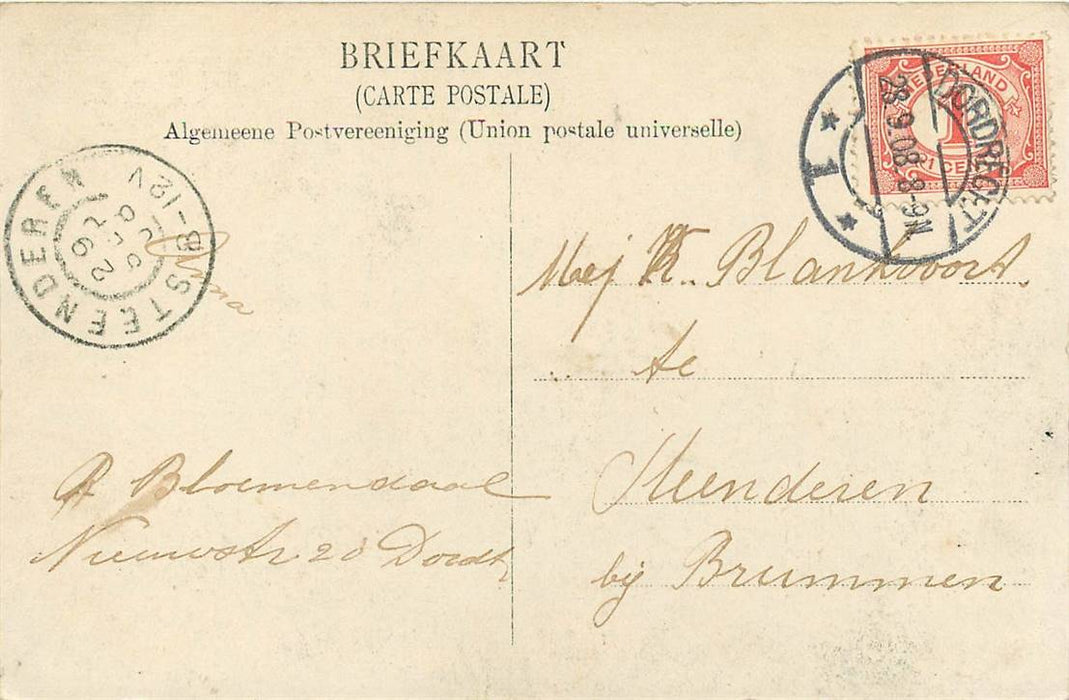 BRIEFKAART
(CARTE POSTALE)
Algemeene Postvereeniging (Union postale universelle)
NEDERLAND
1
1 CENT
DORDRECHT
28.9.08.8-9N.
1
STEENDEREN
8-12V
Anna
Mej K. Blankvoort
te
Steenderen
bij Brummen
A Bloemendaal
Nieuwstr 20 Dordt